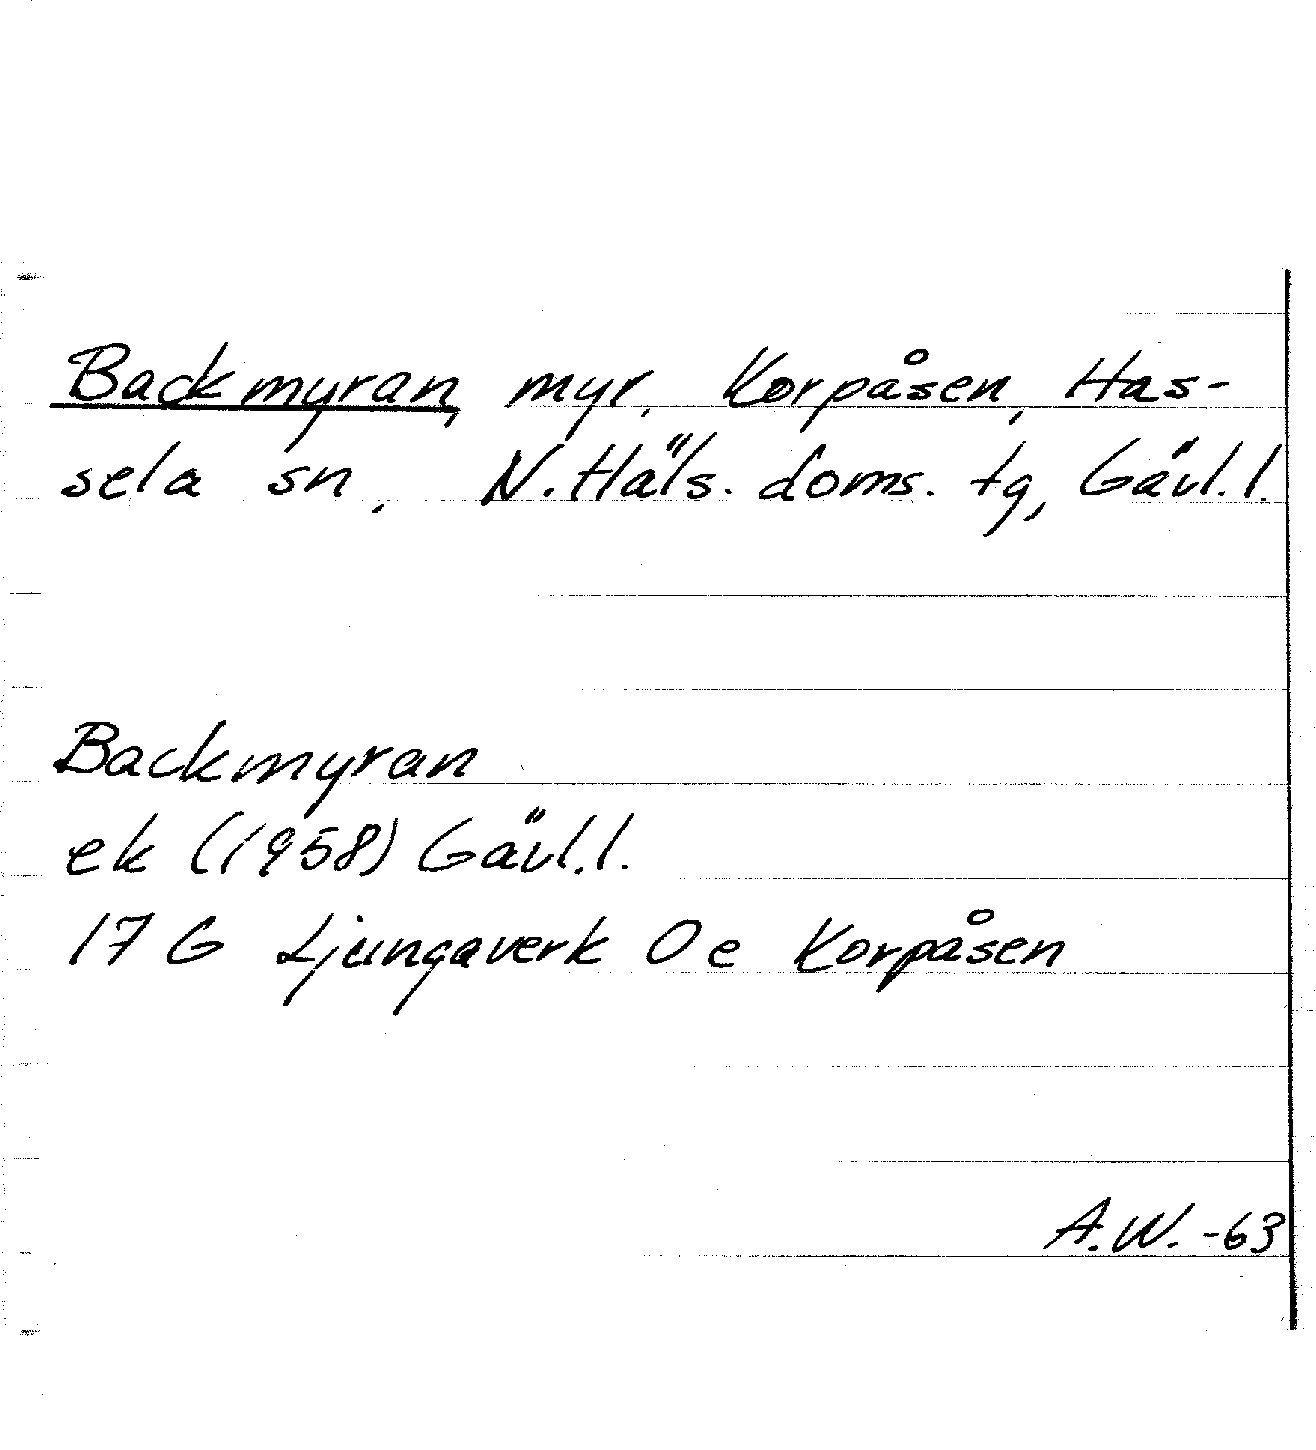 Backmyran, myr, Korpåsen, Has-
sela sn, N.Häls. doms. tg, Gävl.l.
Backmyran
ek (1958) Gävl.l.
17 G Ljungaverk 0e Korpåsen
A.W. -63